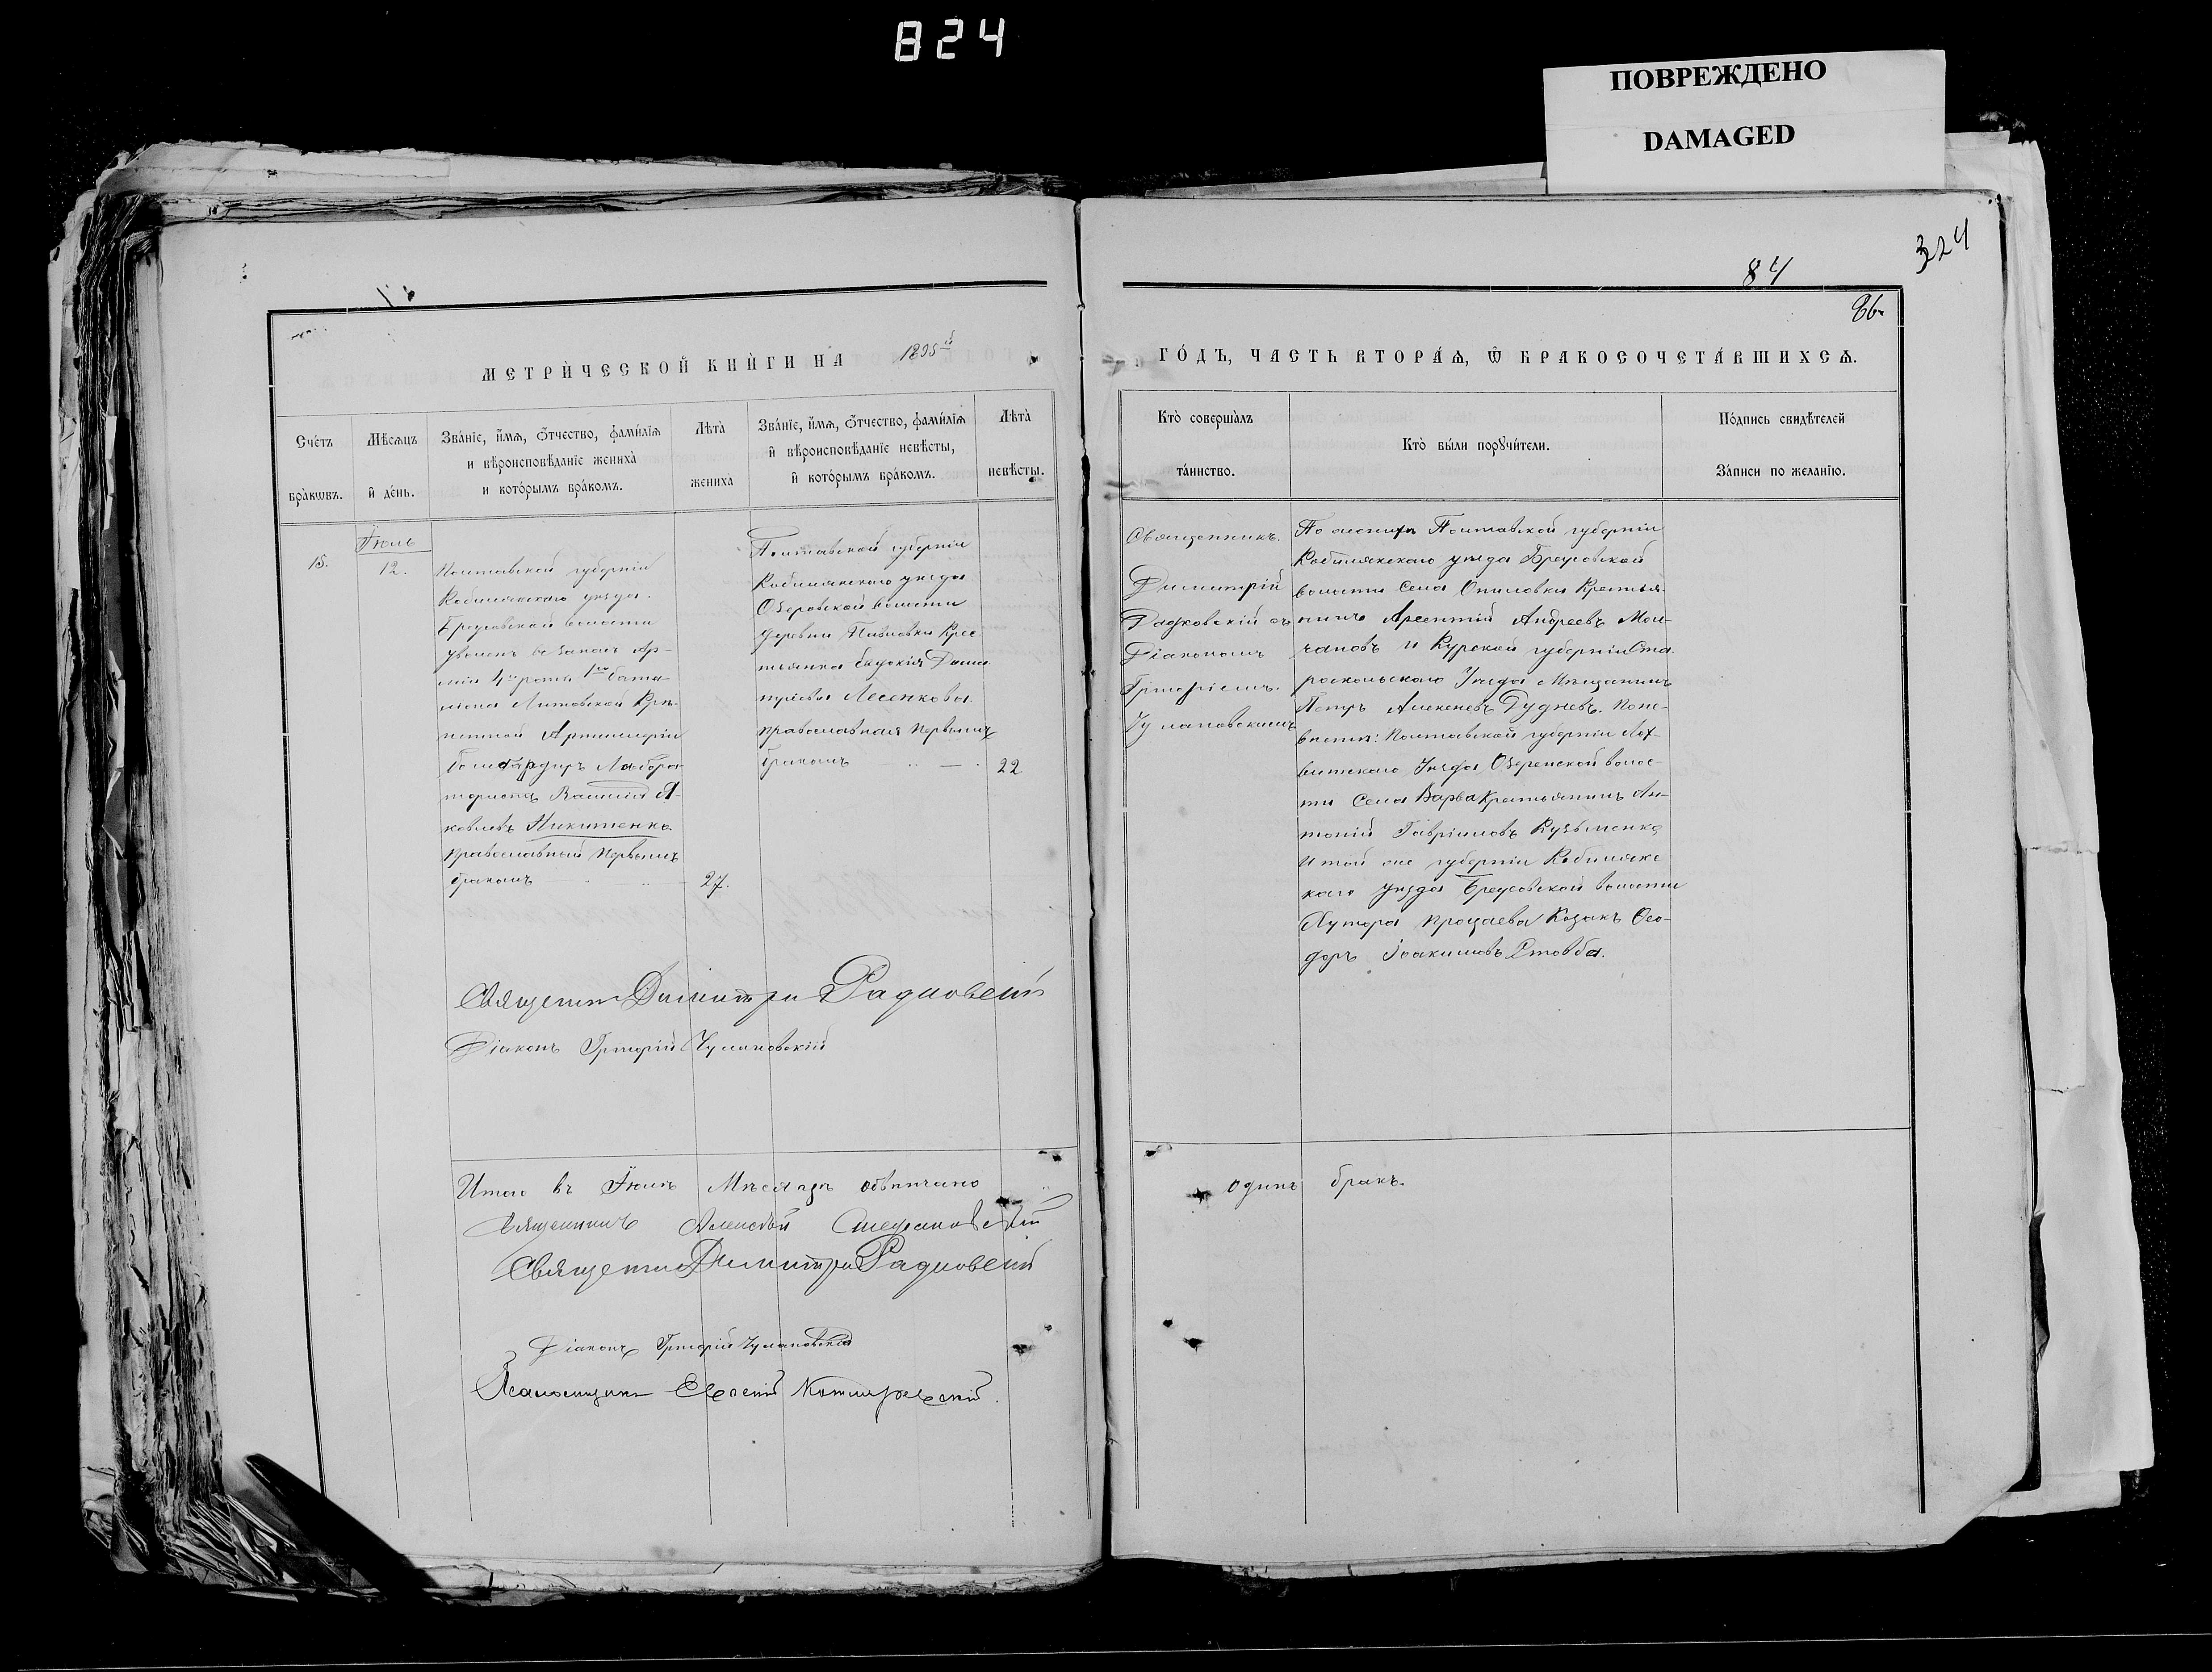 824
ПОВРЕЖДЕНО
DAMAGED
324
84
86
МЕТРИЧЕСКОЙ КНИГИ НА 1895
ГОДЪ, ЧАСТЬ ВТОРАЯ, Ѿ БРАКОСОЧЕТАВШИХСЯ.
Счетъ браковъ.
Мѣсяцъ и день.
Званіе, имя, отчество, фамилія
и вѣроисповѣданіе жениха
и которымъ бракомъ.
Лѣта
жениха
Званіе, имя, отчество, фамилія
и вѣроисповѣданіе невѣсты,
и которымъ бракомъ.
Лѣта
невѣсты.
Кто совершалъ
таинство.
Кто были поручители.
Подпись свидѣтелей
Записи по желанію.
15.
Іюль
12.
Полтавской губерніи
Кобелякскаго уѣзда
Бреусовской волости
уволенъ въ запасъ Ар-
міи 4й роты 1го бата-
ліона Литовской Крѣ-
постной Артиллеріи
Бомбардиръ Лабора-
тористъ Василій Я-
ковлевъ Никитенко
православный первымъ
бракомъ
27.
Полтавской губерніи
Кобелякскаго уѣзда
Озеровской волости
деревни Пивновки Крес
тьянка Евдокія Дими
тріева Лесенкова
православная первымъ
бракомъ
22
Священникъ
Димитрій
Радковскій съ
Діакономъ
Григоріемъ
Чумановскимъ
По женихѣ Полтавской губерніи
Кобелякскаго уѣзда Бреусовской
волости села Опиловки Крестья-
нинъ Арсентій Андреевъ Мол-
чановъ и Курской губерніи Ста-
роскольскаго Уѣзда Мѣщанинъ
Петръ Алексеевъ Рудневъ. По не-
вѣсте: Полтавской губерніи Лох-
витскаго Уѣзда Озеренской волос-
ти села Варва Крестьянинъ Ан-
тоній Гавріиловъ Кузьменко
и той же губерніи Кобелякс
каго уѣзда Бреусовской волости
Хутора Процаева Козакъ Ѳео-
доръ Іоакимовъ Стовба.
Священникъ Димитрій Радковскій
Діаконъ Григорій Чумановскій
Итого въ Іюлѣ Мѣсяцѣ обвѣнчано
одинъ бракъ.
Священникъ Алексѣй Стефановскій
Священникъ Димитрій Радковскій
Діаконъ Григорій Чумановскій
Псаломщикъ Евгеній Котляревскій.